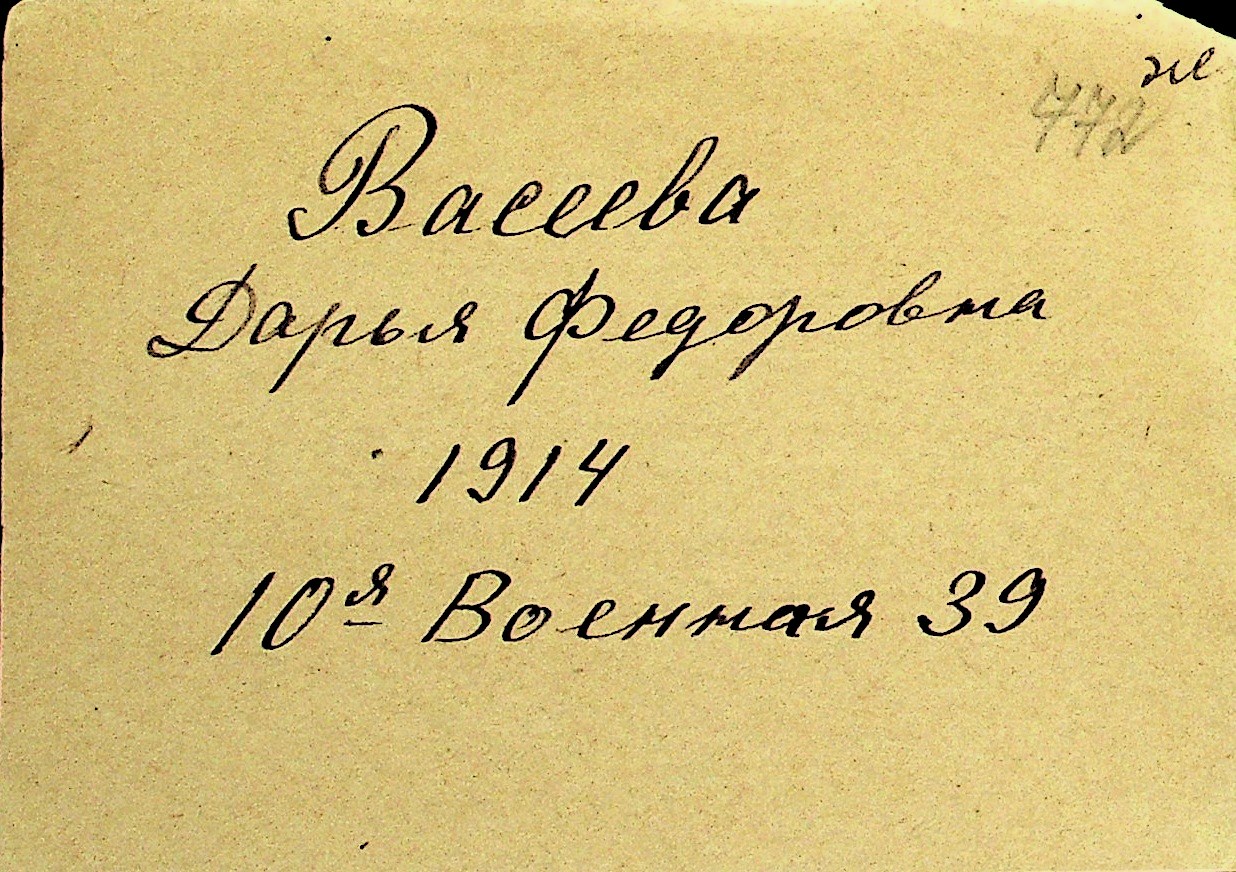 ж
772
Васеева
Дарья Федоровна
1914
10я Военная 39